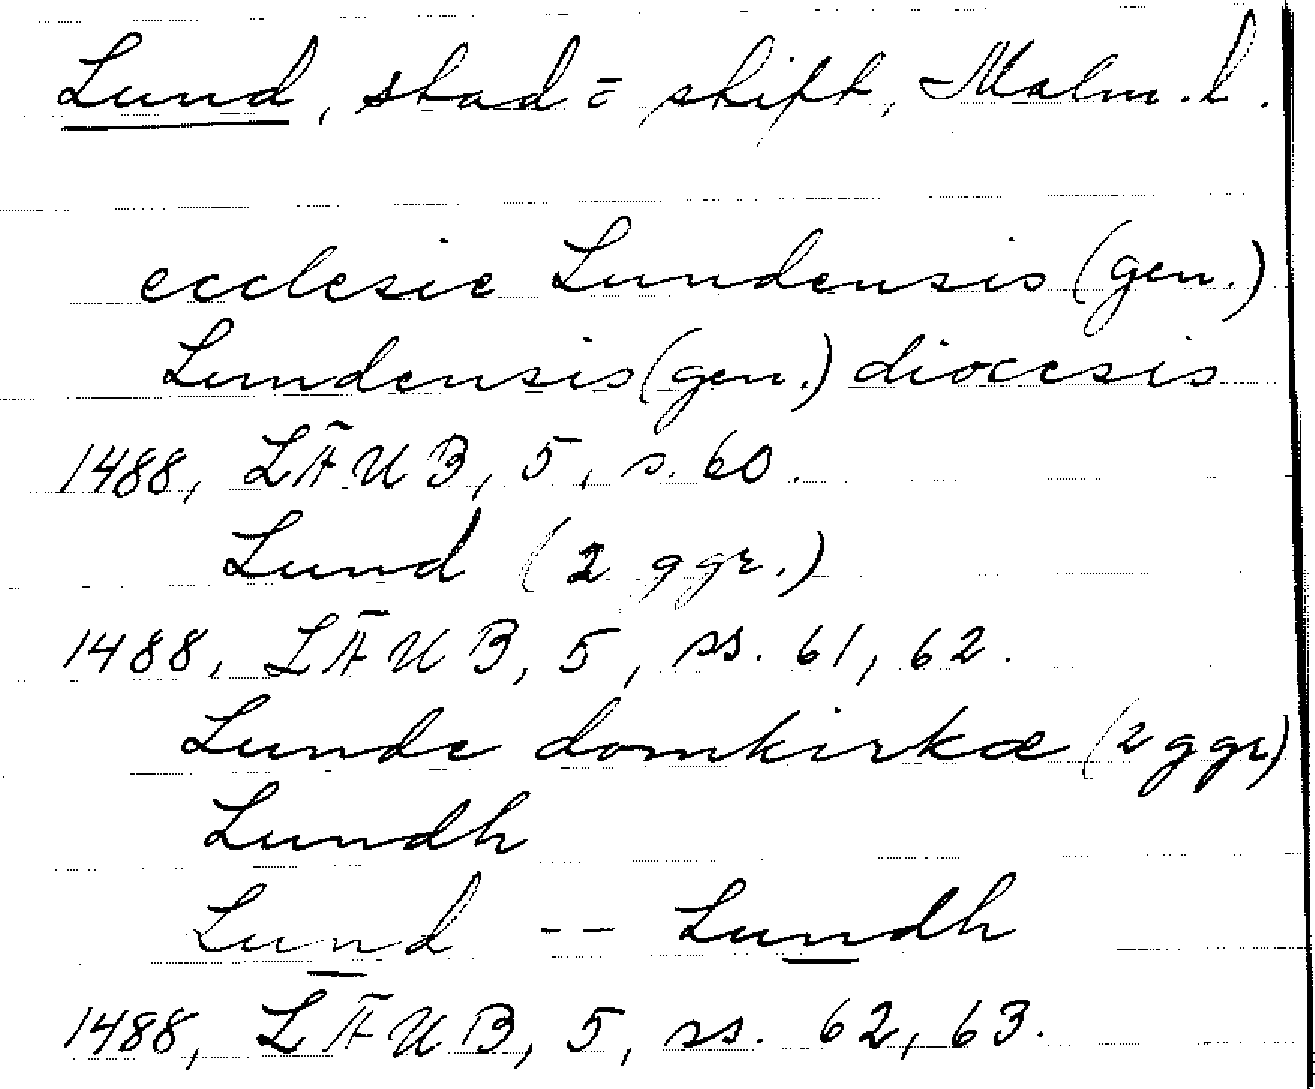 Lund, stad = skift, Malm. l.
ecclesie Lundensis (gen.)
Lundensis (gen.) diocesis
1488, LÄUB, 5, s. 60.
Lund (2 ggr.)
1488, LÄUB, 5, ss. 61, 62.
Lunde domkirkæ (2 ggr)
Lundh
Lund -- Lundh
1488, LÄUB, 5, ss. 62, 63.